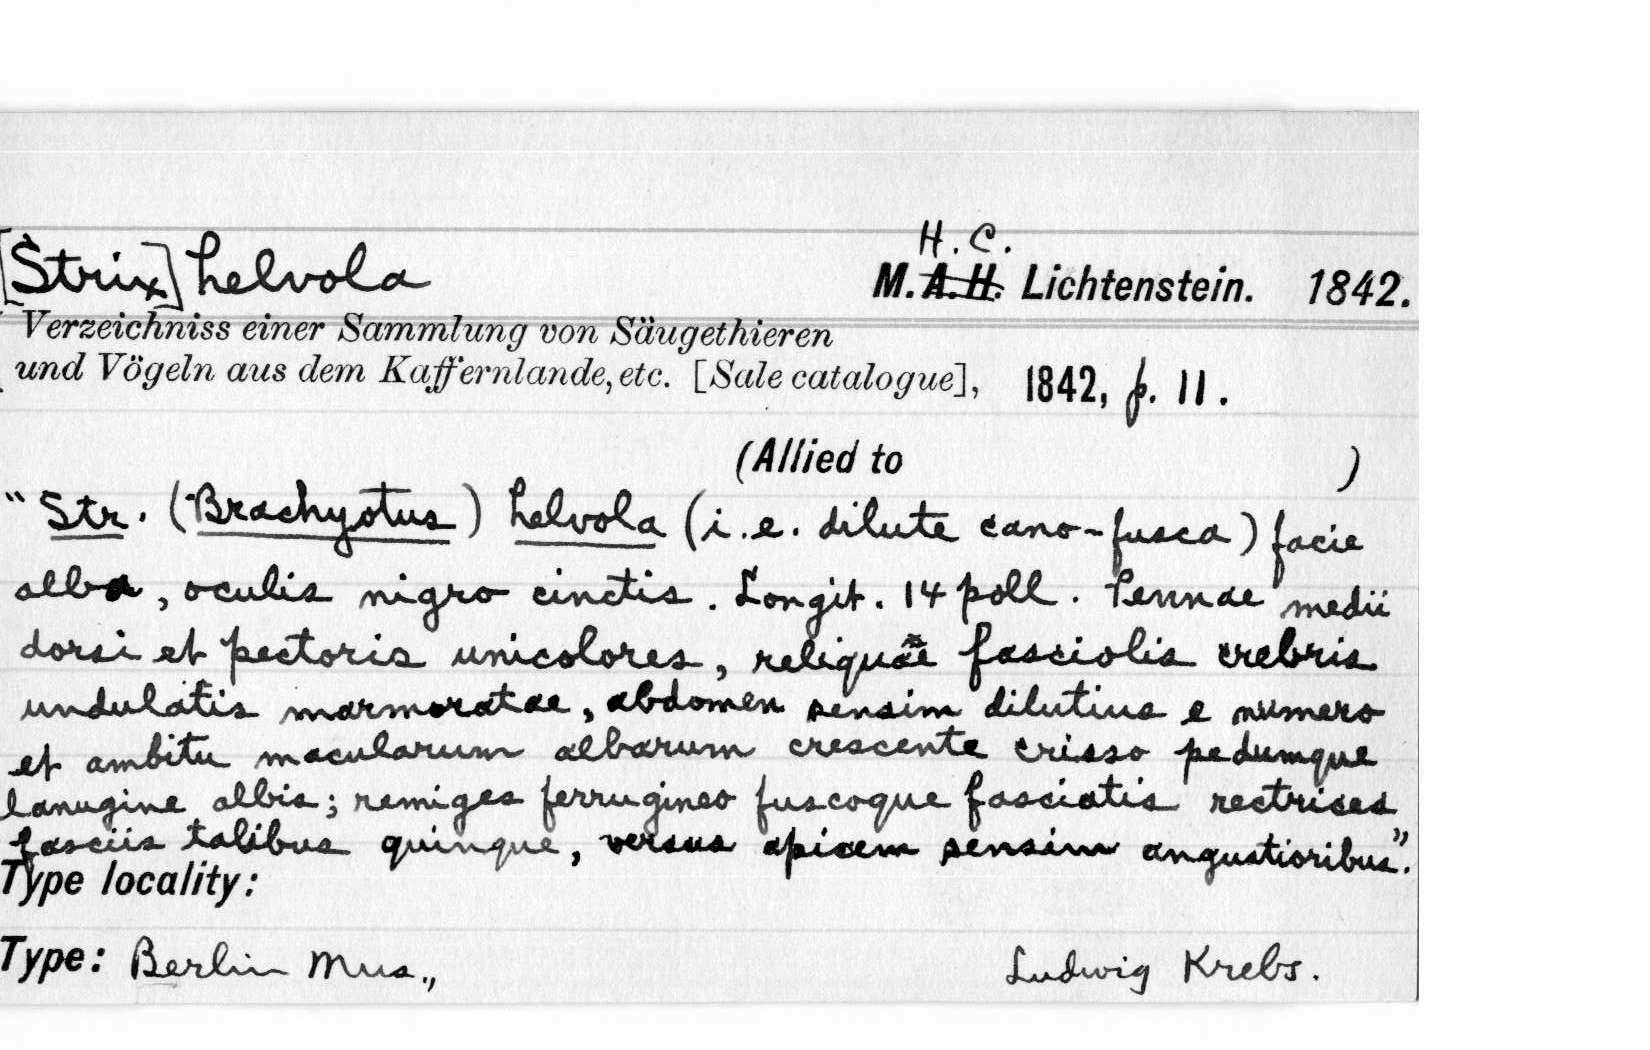 H. C.
[Strix] helvola M. A. H. Lichtenstein. 1842.
Verzeichniss einer Sammlung von Säugethieren
und Vögeln aus dem Kaffernlande, etc. [Sale catalogue], 1842, p. 11.
(Allied to )
"Str. (Brachyotus) helvola (i.e. dilute cano-fusca) facie
alba, oculis nigro cinctis. Longit. 14 poll. Pennae medii
dorsi et pectoris unicolores, reliquae fasciolis crebris
undulatis marmoratae, abdomen sensim dilutius e numero
et ambitu macularum albarum crescente crisso pedumque
lanugine albis; remiges ferrugineo fuscoque fasciatis rectrices
fasciis talibus quinque, versus apicem sensim angustioribus".
Type locality:
Type: Berlin Mus., Ludwig Krebs.